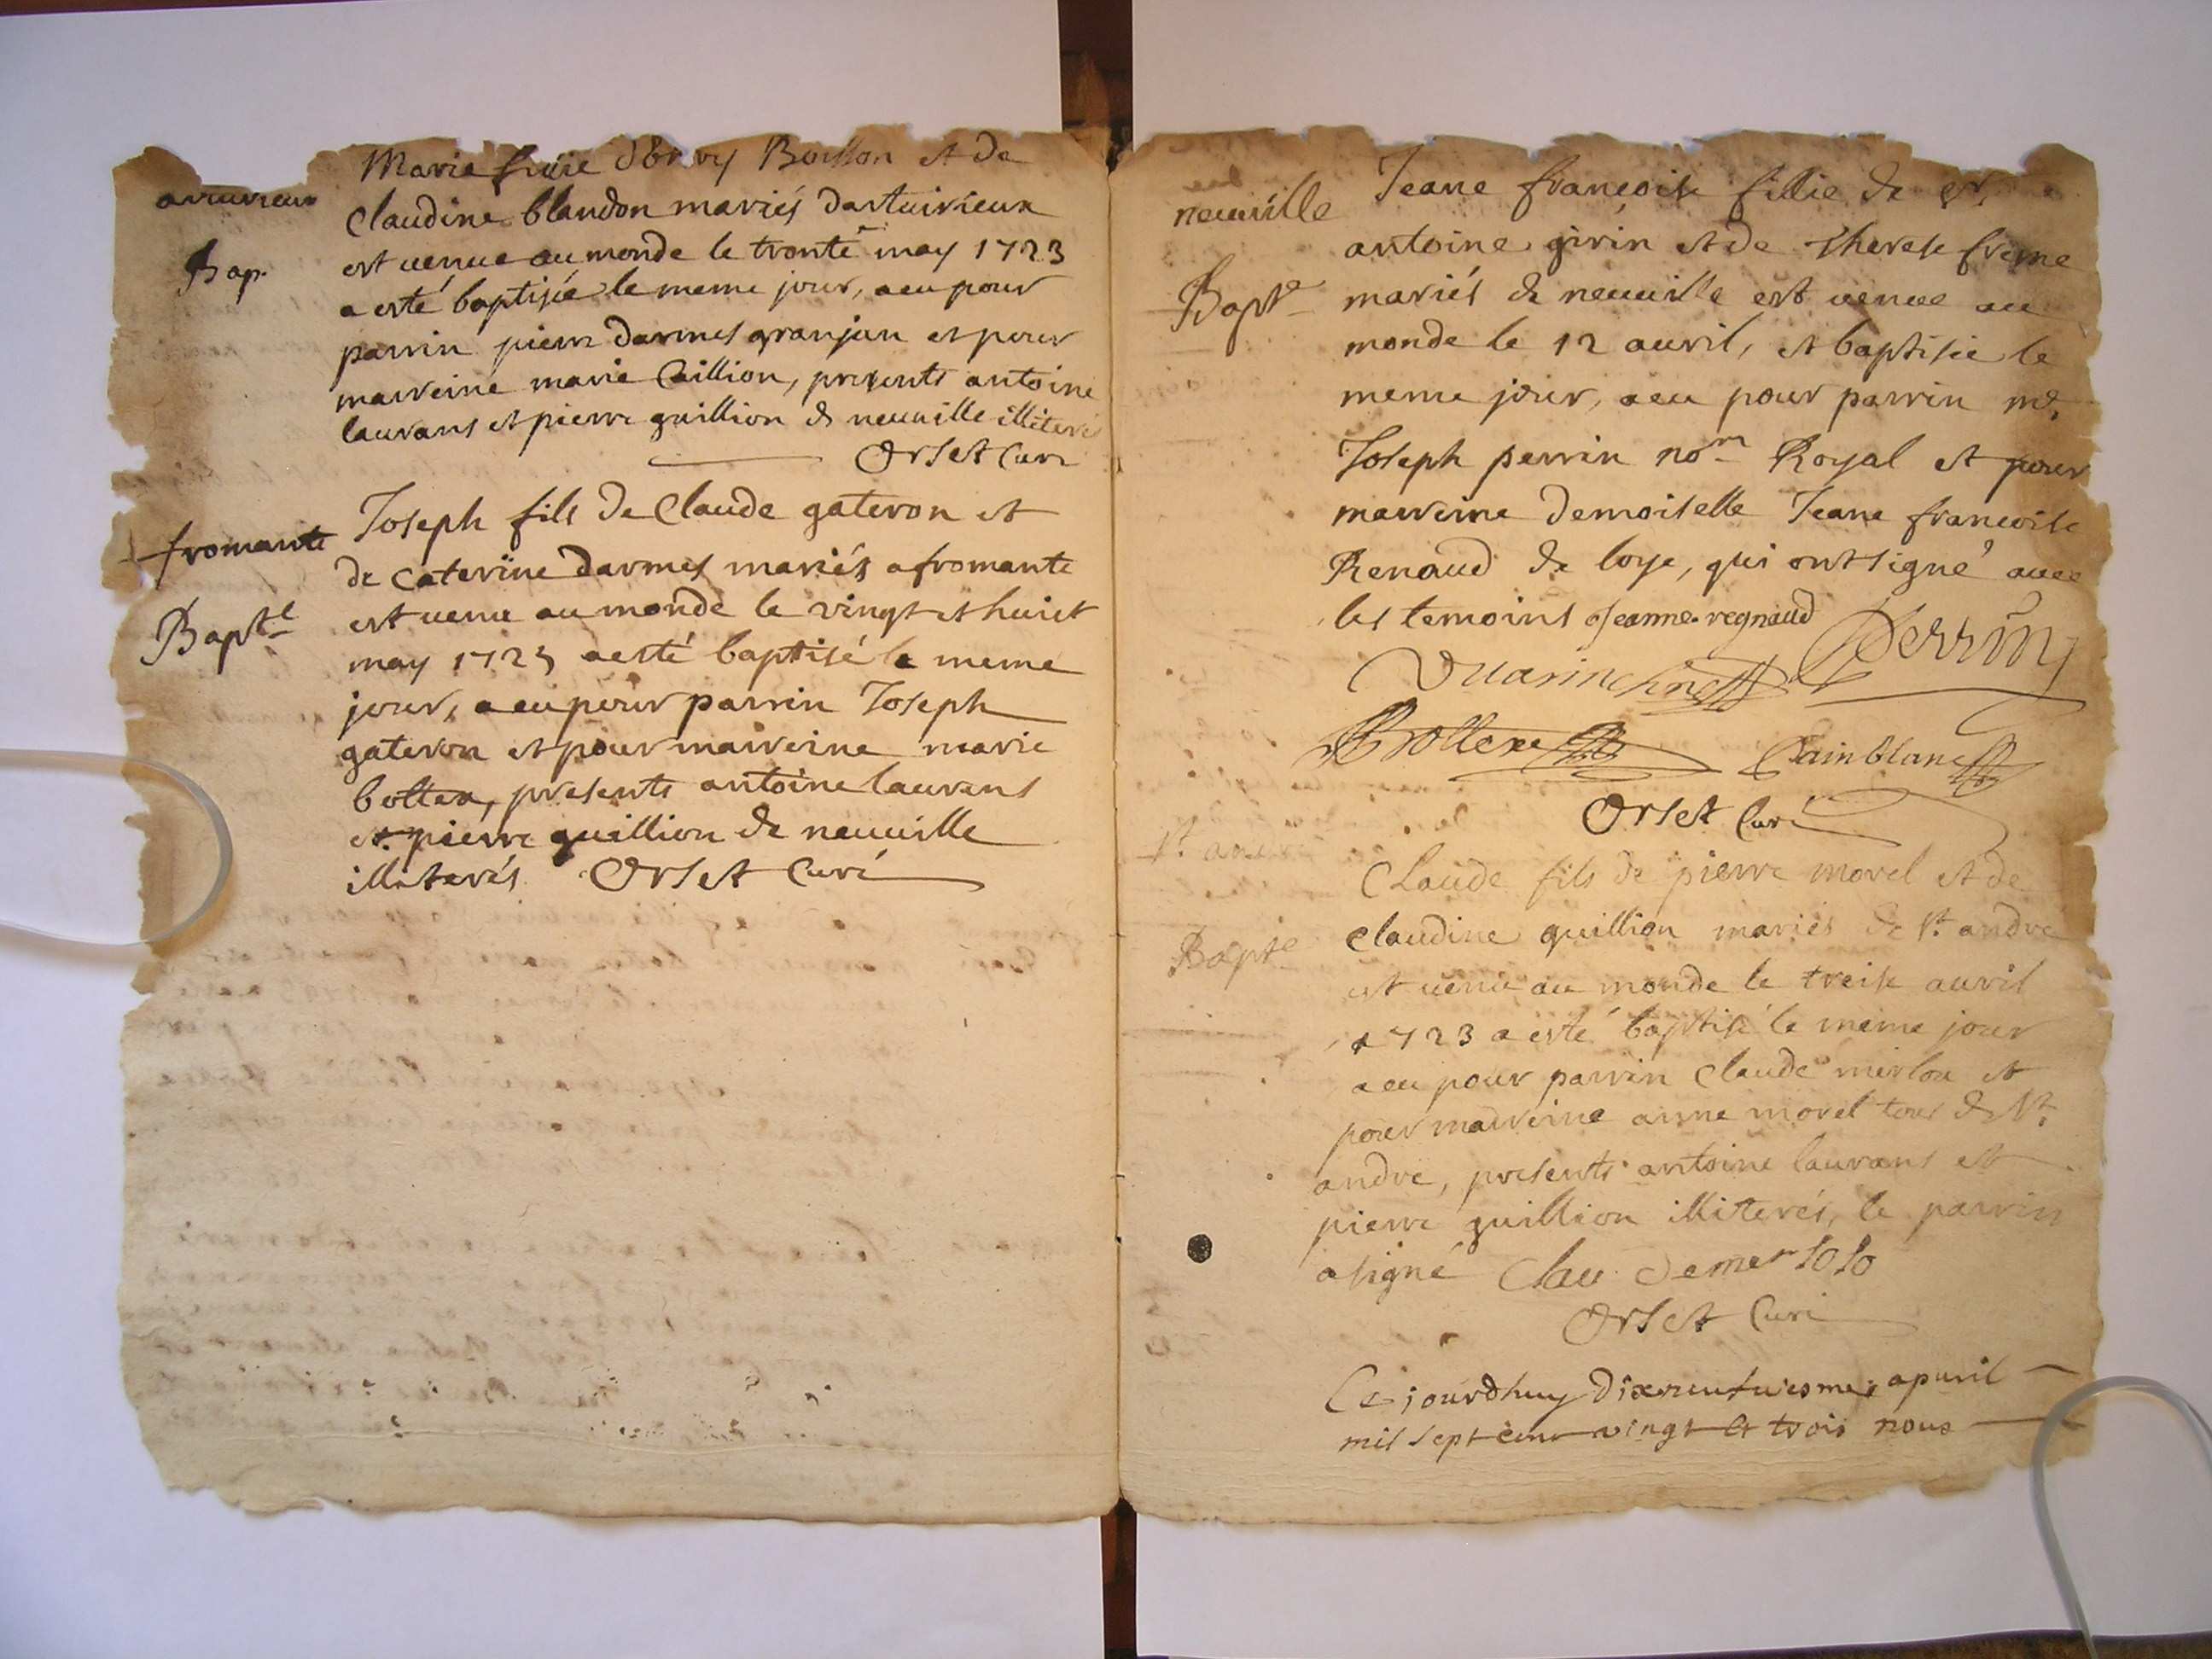 Marie fillie d'Ery Bouillon et de
arturieux
Claudine blandon mariés dartuirieux
est venue au monde le tronte may 1723
Bap.
a esté baptisée le meme jour, a eu pour
parrin pierre darmes granjan et pour
marreine marie Caillion, presents antoine
laurans et pierre guillion de neuuille illiterés
Orset Curé
Joseph fils de Claude gateron et
fromante
de Caterine darmes mariés a fromante
est uenu au monde le vingt et huict
Bapte
may 1723 a esté baptisé le meme
jour, a eu pour parrin Joseph
gateron et pour marreine marie
bottex, presents antoine laurans
et pierre guillion de neuuille
illiterés Orset Curé
Jeane françoise fillie de sr.
neuuille
antoine girin et de therese freme
Bapte
mariés de neuuille est uenue au
monde le 12 auuril, et baptisée le
meme jour, a eu pour parrin me.
Joseph perrin no.re Royal et pour
marreine demoiselle Jeane francoise
Renaud de loye, qui ont signé auec
les temoins Jeanne regnaud
Perrin
Vuarin
Bottex Painblanc
Orset Curé
st. andre
Claude fils de pierre morel et de
claudine guillion mariés de st. andre
Bapte
est uenu au monde le treise auuril
1723 a esté baptisé le meme jour
a eu pour parrin claude merlou et
pour marreine anne morel tous de st.
andre, presents antoine laurans et
pierre guillion illiterés, le parrin
a signé Clau demerlolo
Orset Curé
Ce jourdhuy apuril
mil sept cent vingt et trois nous